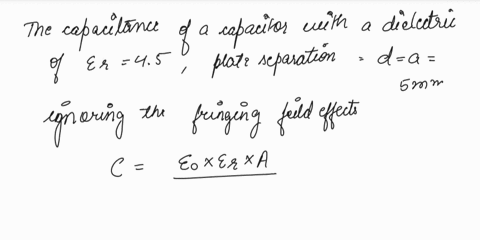 The capacitance of a capacitor with a dielectric
of εr = 4.5, plate separation = d = a =
5mm
ignoring the fringing feild effects
C = ε0 × εr × A